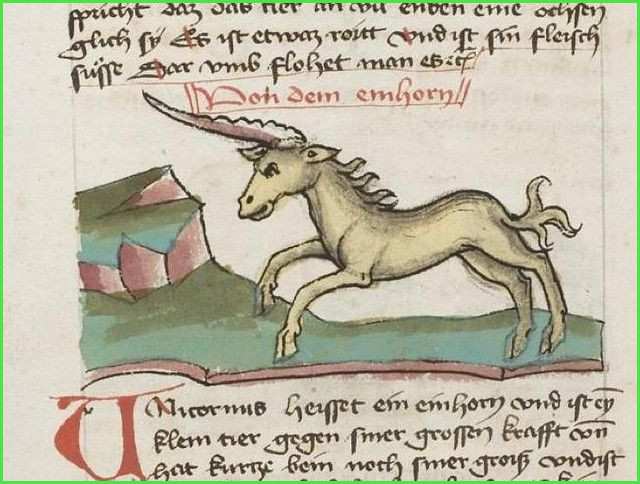 spricht daz das tier an vil enden eine ochsen
glich sy Es ist etwaz roitt vnd ist sin fleisch
süsse Dar vmb flohet man es etc
Von dem einhorn
Unicornus heisset ein einhorn vnd ist ey
klein tier gegen siner grossen krafft vn
hat kurtze bein noch siner groiß vnd ist